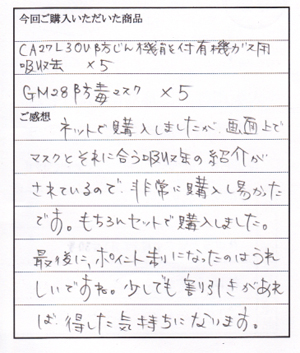 今回ご購入いただいた商品
CA27L30V防じん機能付有機ガス用
吸収缶 ×5
GM28防毒マスク ×5
ご感想
ネットで購入しましたが、画面上で
マスクとそれに合う吸収缶の紹介が
されているので、非常に購入し易かった
です。もちろんセットで購入しました。
最後に、ポイント制になったのはうれ
しいですね。少しでも割引きがあれ
ば、得した気持ちになります。